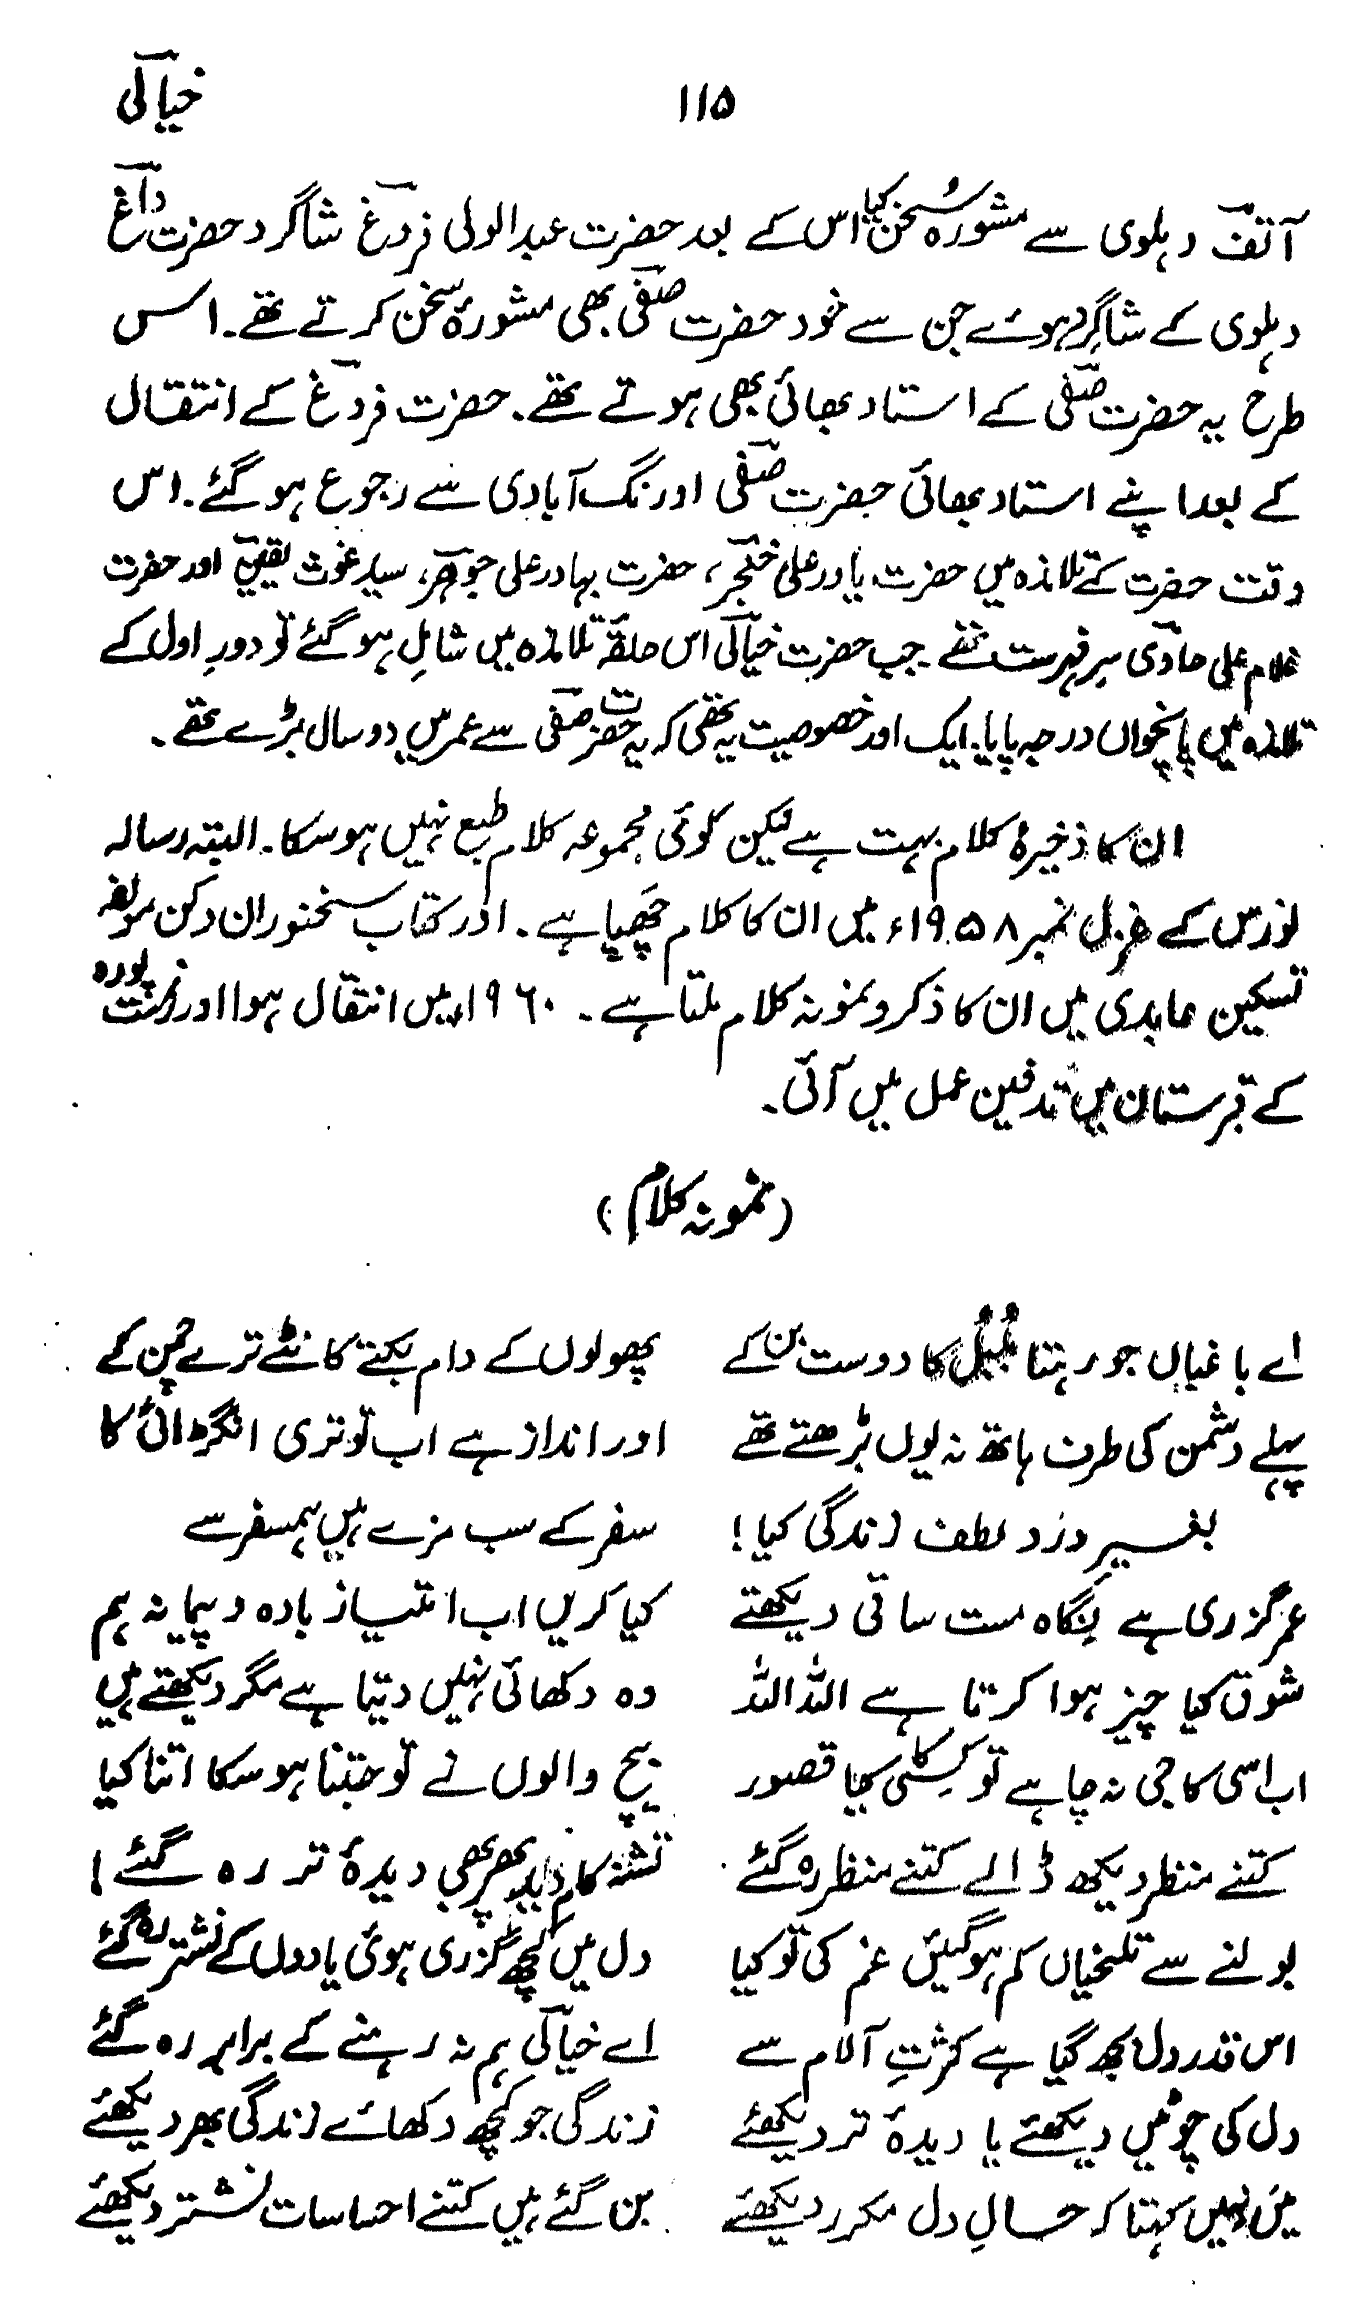 خیالی
۱۱۵
آتف دہلوی سے مشورۂ سخن کیا اس کے بعد حضرت عبدالولی فروغ شاگرد حضرت داغ
دہلوی کے شاگرد ہوئے جن سے خود حضرت صفی بھی مشورۂ سخن کرتے تھے۔ اس
طرح یہ حضرت صفی کے استاد بھائی بھی ہوتے تھے۔ حضرت فروغ کے انتقال
کے بعد اپنے استاد بھائی حضرت صفی اورنگ آبادی سے رجوع ہوگئے۔ اس
وقت حضرت کے تلامذہ میں حضرت یاور علی خنجر، حضرت بہادر علی جوہر، سید غوث یقین اور حضرت
غلام علی حاوی سرفہرست تھے۔ جب حضرت خیالی اس حلقۂ تلامذہ میں شامل ہوگئے تو دورِ اول کے
تلامذہ میں پانچواں درجہ پایا۔ ایک اور خصوصیت یہ تھی کہ یہ حضرت صفی سے عمر میں دو سال بڑے تھے۔
ان کا ذخیرۂ کلام بہت ہے لیکن کوئی مجموعہ کلام طبع نہیں ہوسکا۔ البتہ رسالہ
نورس کے غزل نمبر ۱۹۵۸ء میں ان کا کلام چھپا ہے۔ اور کتاب سخنوران دکن مولفہ
تسکین عابدی میں ان کا ذکر و نمونہ کلام ملتا ہے۔ ۱۹۶۰ء میں انتقال ہوا اور زینت پورہ
کے قبرستان میں تدفین عمل میں آئی۔
(نمونہ کلام)
اے باغباں جو رہتا بلبل کا دوست بن کے پھولوں کے دام بکتے کانٹے ترے چمن کے
پہلے دشمن کی طرف ہاتھ نہ یوں بڑھتے تھے اور انداز ہے اب تو تری انگڑائی کا
بغیرِ درد لطف زندگی کیا! سفر کے سب مزے ہیں ہمسفر سے
عمر گزری ہے نگاہ مست ساقی دیکھتے کیا کریں اب امتیاز بادہ و پیمانہ ہم
شوق کیا چیز ہوا کرتا ہے اللہ اللہ وہ دکھائی نہیں دیتا ہے مگر دیکھتے ہیں
اب اسی کا جی نہ چاہے تو کسی کا کیا قصور بیچ والوں نے تو جتنا ہوسکا اتنا کیا
کتنے منظر دیکھ ڈالے کتنے منظر رہ گئے تشنہ کام دید پھر بھی دیدۂ تر رہ گئے!
بولنے سے تلخیاں کم ہوگئیں غم کی تو کیا دل میں کچھ گزری ہوئی یادوں کے نشتر رہ گئے
اس قدر دل بجھ گیا ہے کثرتِ آلام سے اے خیالی ہم نہ رہنے کے برابر رہ گئے
دل کی چوٹیں دیکھئے یا دیدۂ تر دیکھئے زندگی جو کچھ دکھائے زندگی بھر دیکھئے
میں نہیں کہتا کہ حالِ دل مکرر دیکھئے بن گئے ہیں کتنے احساسات نشتر دیکھئے